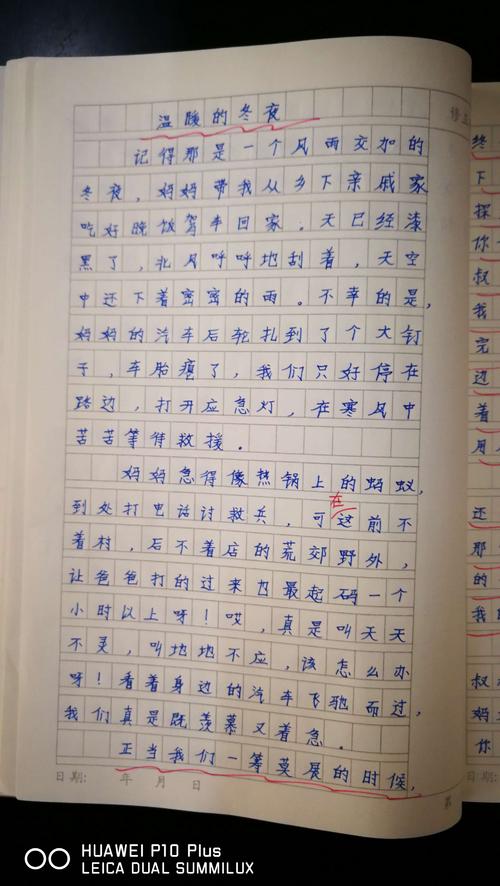 温暖的冬夜
记得那是一个风雨交加的
冬夜，妈妈带我从乡下亲戚家
吃好晚饭驾车回家。天已经漆
黑了，北风呼呼地刮着，天空
中还下着密密的雨。不幸的是，
妈妈的汽车后轮扎到了个大钉
子，车胎瘪了，我们只好停在
路边，打开应急灯，在寒风中
苦苦等待救援。
妈妈急得像热锅上的蚂蚁，
到处打电话讨救兵，可在这前不
着村，后不着店的荒郊野外，
让爸爸打的过来也最起码一个
小时以上呀！哎，真是叫天天
不灵，叫地地不应，该怎么办
呀！看着身边的汽车飞驰而过，
我们真是既羡慕又着急。
正当我们一筹莫展的时候，
日期： 年 月 日
第
终
下
探
你
叔
我
完
边
着
用
还
那
的
我
叔
妈
你
HUAWEI P10 Plus
LEICA DUAL SUMMILUX